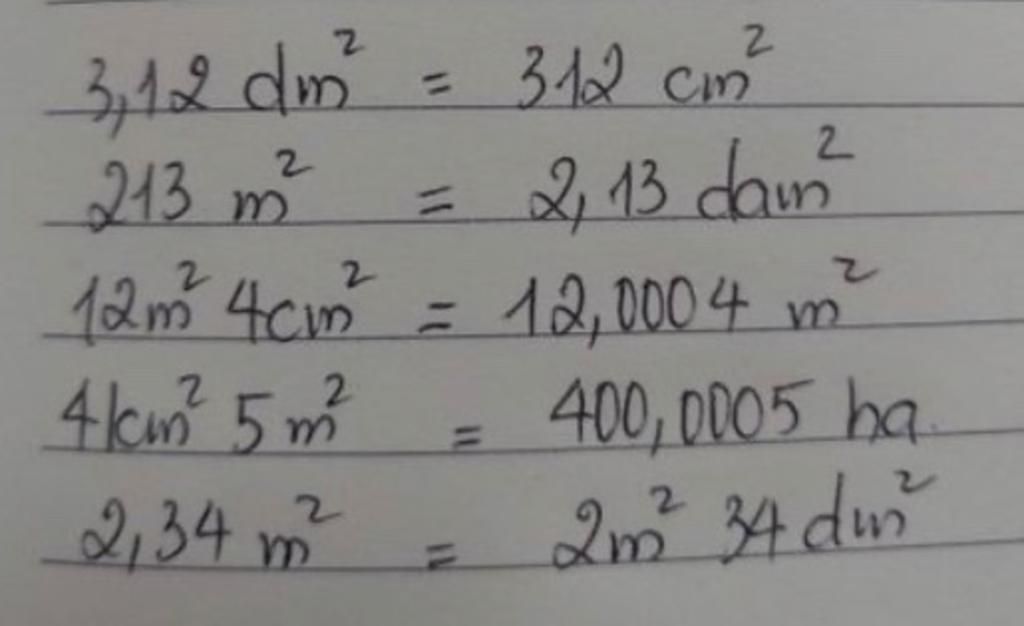 3,12 dm² = 312 cm²
213 m² = 2,13 dam²
12m² 4cm² = 12,0004 m²
4km² 5m² = 400,0005 ha.
2,34 m² = 2m² 34 dm²